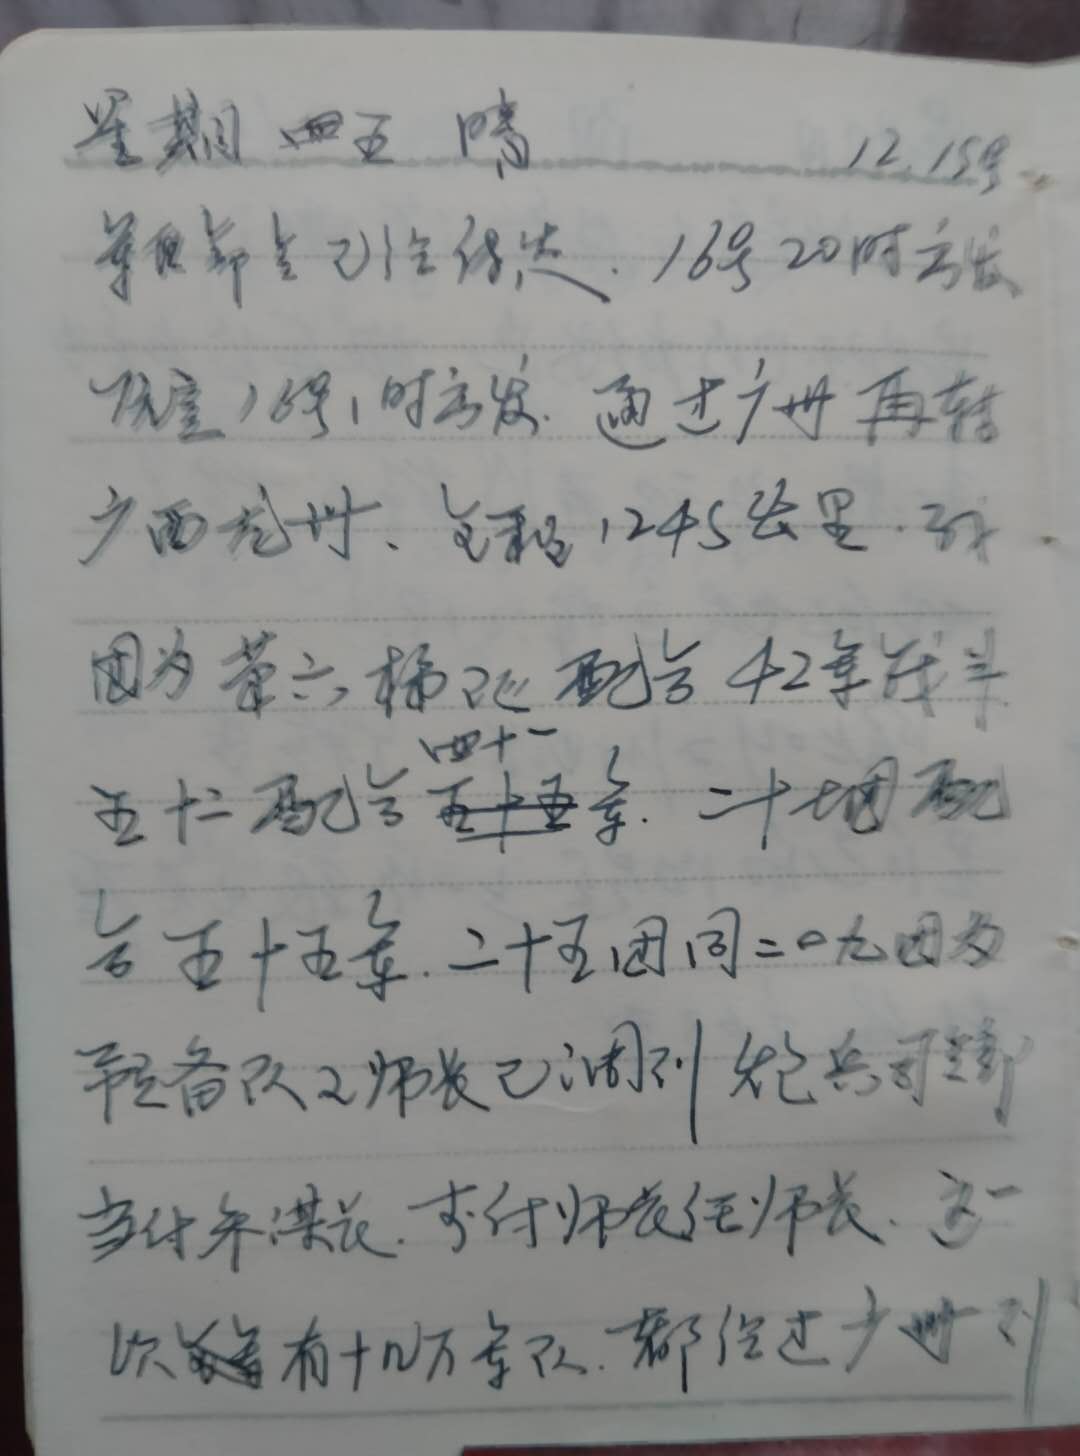 星期五 晴 12.15号
军区命令已经传达. 16号20时出发
16号1时出发. 通过广州再转
广西龙州、全程1245公里. 我
团为第六梯队配合42军作战
五十二配合四十一军. 二十七团配
合五十五军. 二十五团同二0九团为
预备队 师长已调到炮兵司令部
当付参谋长. 李付师长任师长. 这一
次有十几万军队. 都经过广州到